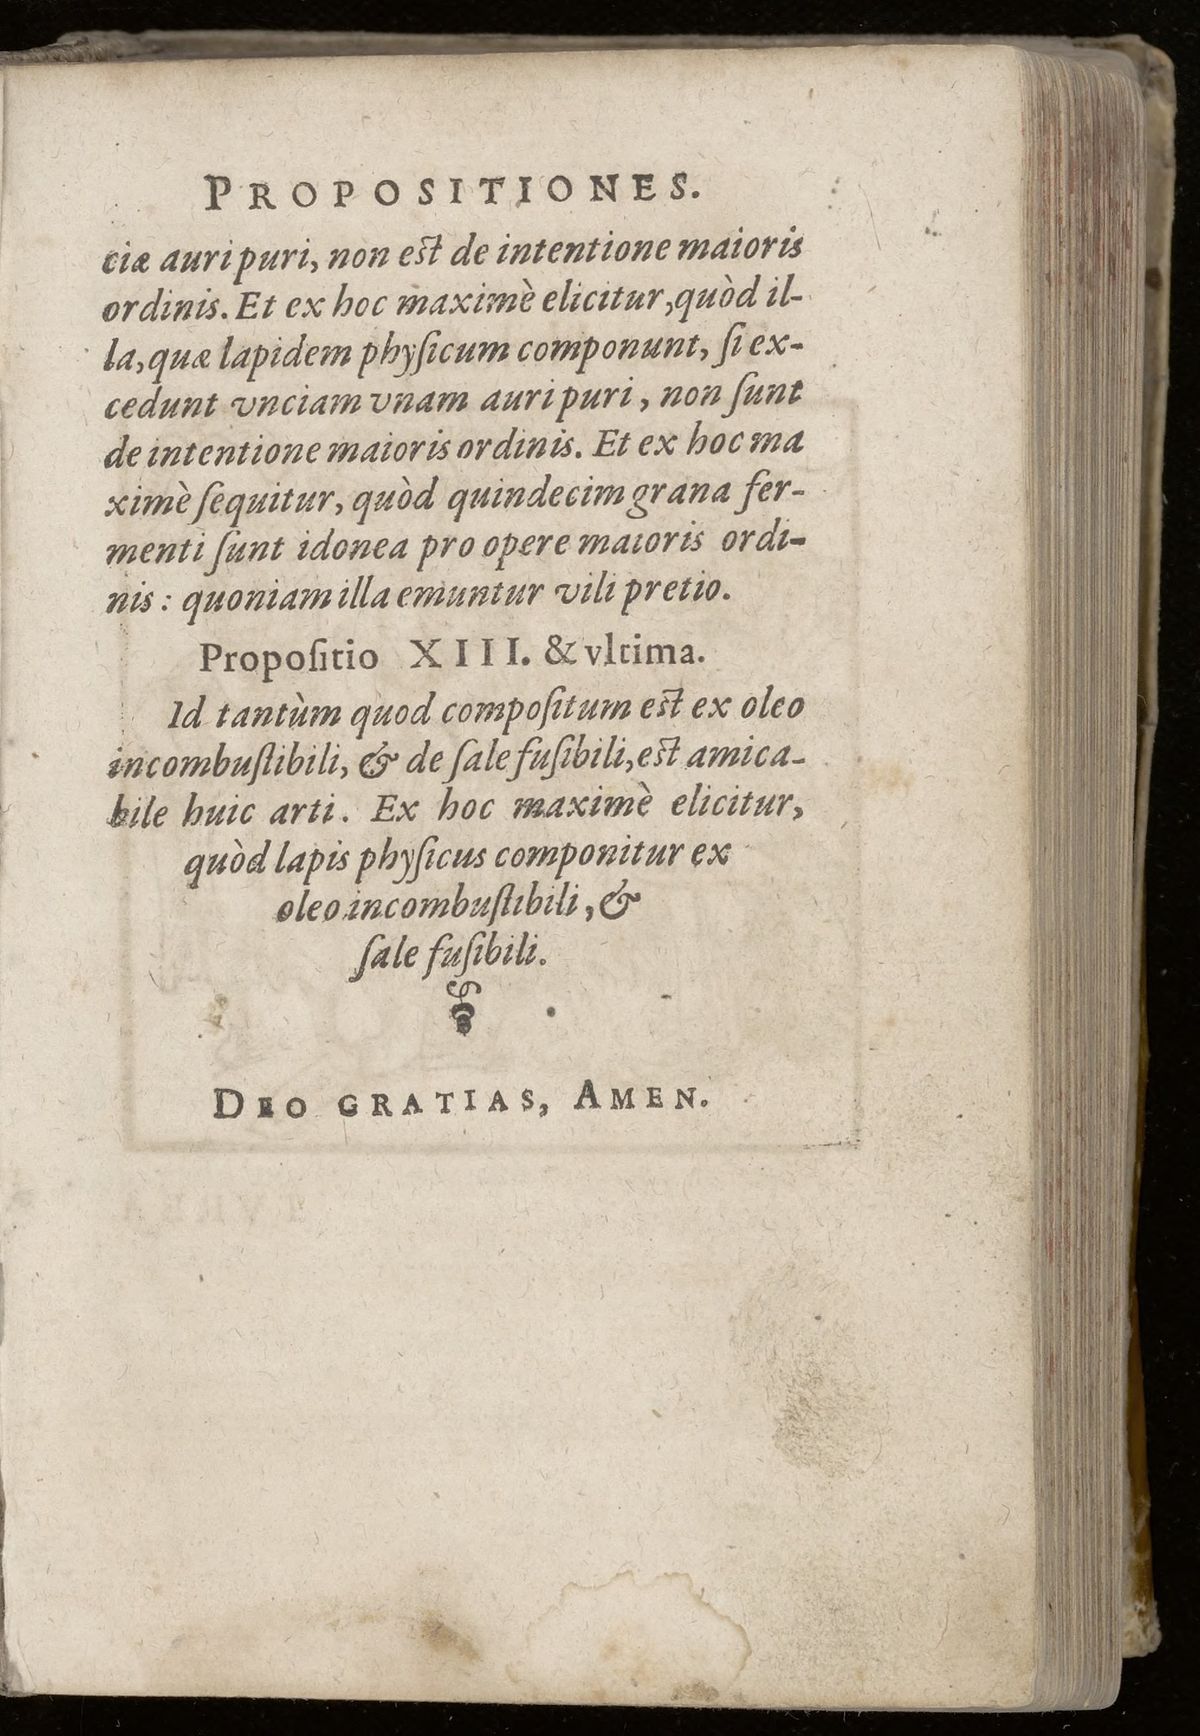 PROPOSITIONES.
ciæ auri puri, non est de intentione maioris
ordinis. Et ex hoc maximè elicitur, quòd il-
la, quæ lapidem phyſicum componunt, ſi ex-
cedunt vnciam vnam auri puri, non ſunt
de intentione maioris ordinis. Et ex hoc ma
ximè ſequitur, quòd quindecim grana fer-
menti ſunt idonea pro opere maioris ordi-
nis: quoniam illa emuntur vili pretio.
Propoſitio XIII. & vltima.
Id tantùm quod compoſitum est ex oleo
incombuſtibili, & de ſale fuſibili, est amica-
bile huic arti. Ex hoc maximè elicitur,
quòd lapis phyſicus componitur ex
oleo incombuſtibili, &
ſale fuſibili.
DEO GRATIAS, AMEN.